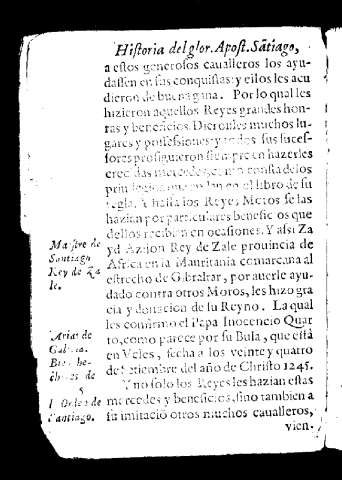 Historia del glor. Apost. Sãtiago,
a estos generosos caualleros los ayu-
dassen en sus conquistas: y ellos les acu
dieron de buena gana. Por lo qual les
hizieron aquellos Reyes grandes hon-
ras y beneficios. Dieronles muchos lu-
gares y possessiones: y todos sus suces-
sores prosiguieron siempre en hazerles
crecidas mercedes, como consta de los
priuilegios que estan en el libro de su
regla. Y hasta los Reyes Moros se las
hazian por particulares beneficios que
dellos reciben en ocasiones. Y assi Za
yd Azajon Rey de Zale prouincia de
Africa en la Mauritania comarcana al
estrecho de Gibraltar, por auerle ayu-
dado contra otros Moros, les hizo gra
cia y donacion de su Reyno. La qual
les confirmo el Papa Inocencio Quar
to, como parece por su Bula, que está
en Veles, fecha a los veinte y quatro
de Setiembre del año de Christo 1245.
Y no solo los Reyes les hazian estas
mercedes y beneficios, sino tambien a
su imitació otros muchos caualleros,
vien-
Maestre de
Santiago
Rey de Za
le.
Arias de
Galicia.
chores de
Orden de
Santiago.